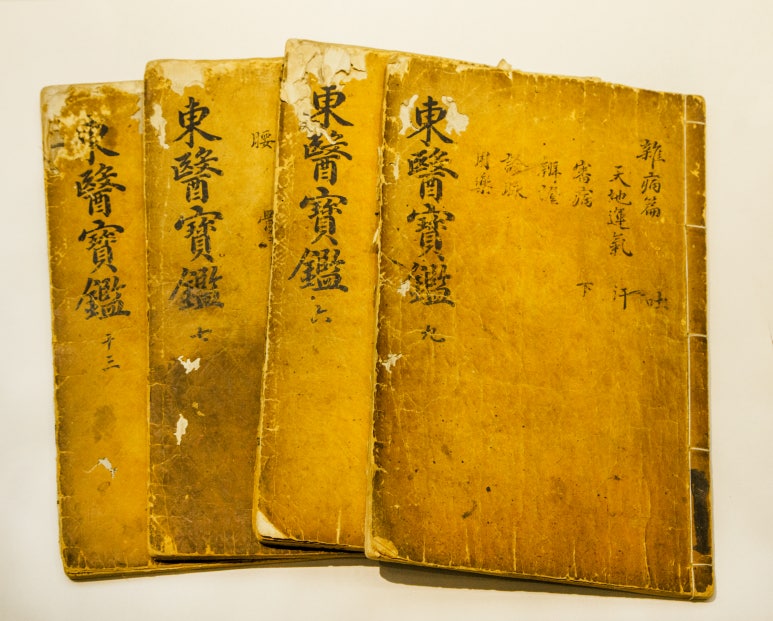 雜病篇 吐
天地運氣 汗
審病 下
辨證
診脈
用藥
東醫寶鑑 九
東醫寶鑑 六
腰
東醫寶鑑 七
東醫寶鑑 三